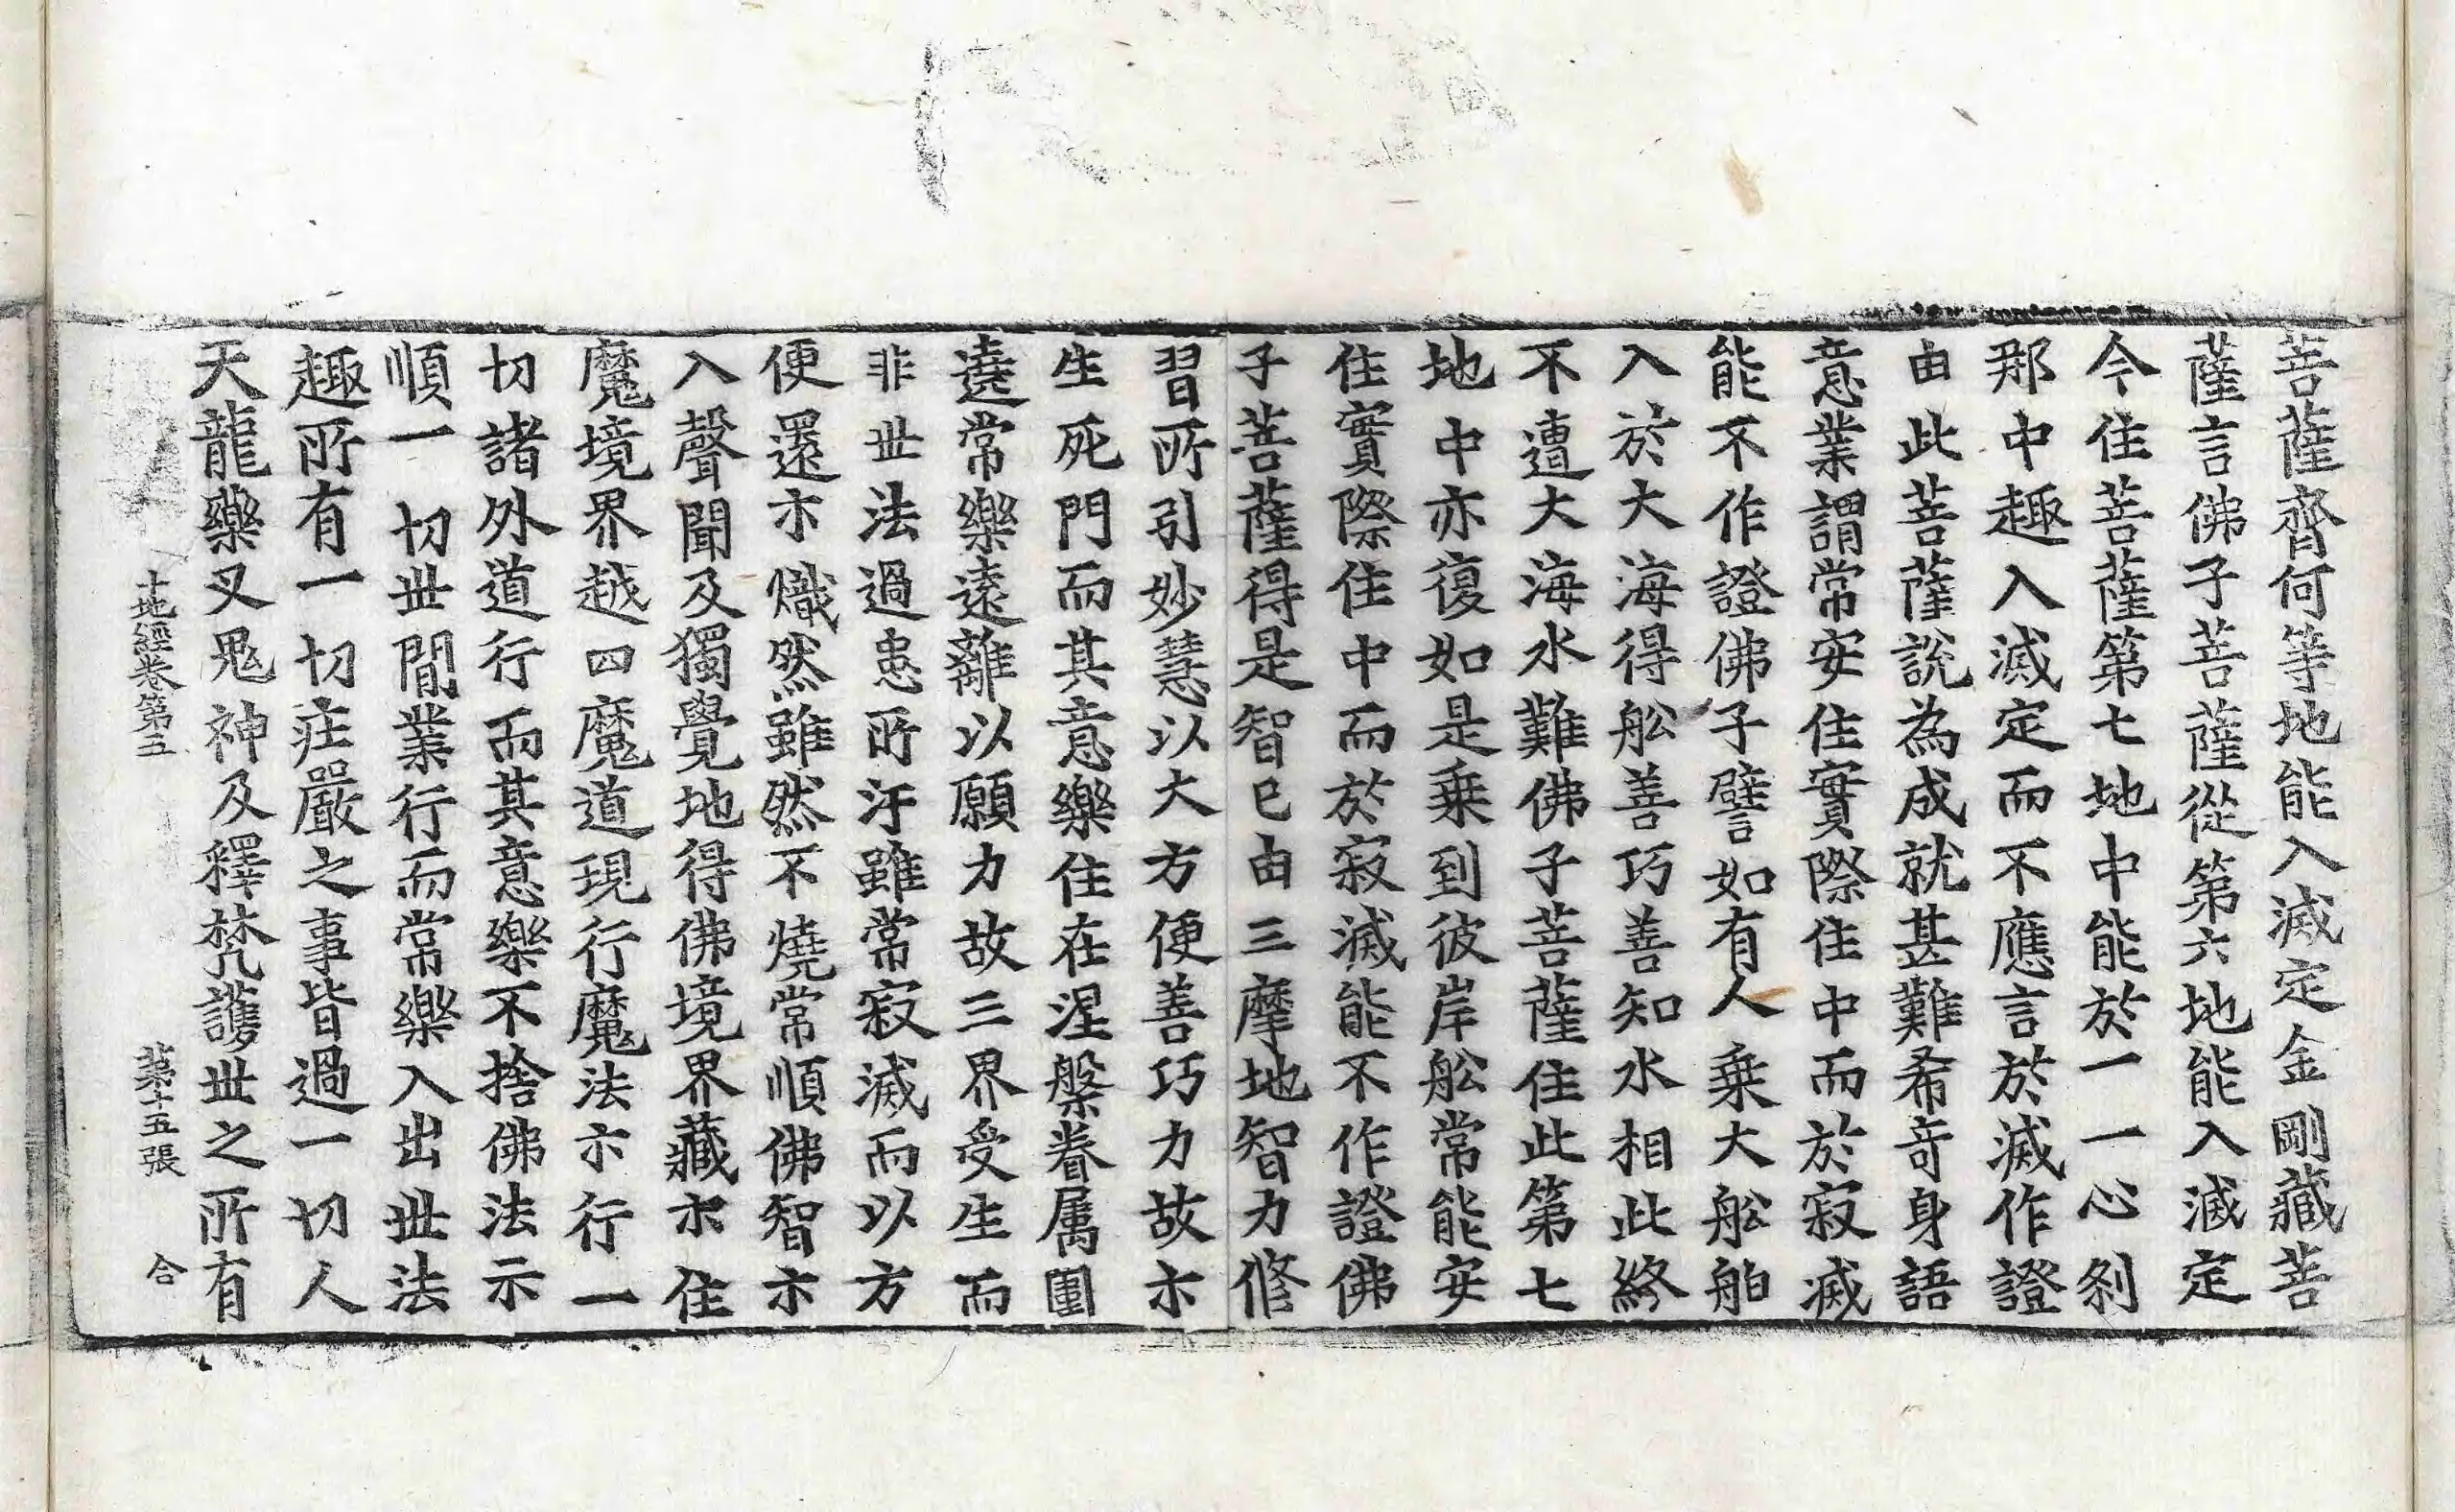 菩薩齊何等地能入滅定金剛藏菩
薩言佛子菩薩從第六地能入滅定
今住菩薩第七地中能於一一心刹
那中趣入滅定而不應言於滅作證
由此菩薩說為成就甚難希奇身語
意業謂常安住實際住中而於寂滅
能不作證佛子譬如有人乗大舩舶
入於大海得舩善巧善知水相此終
不遭大海水難佛子菩薩住此第七
地中亦復如是乗到彼岸舩常能安
住實際住中而於寂滅能不作證佛
子菩薩得是智已由三摩地智力修
習所引妙慧以大方便善巧力故示
生死門而其意樂住在涅槃眷属圍
遶常樂遠離以願力故三界受生而
非世法過患所汙雖常寂滅而以方
便還示熾然雖然不燒常順佛智示
入聲聞及獨覺地得佛境界藏示住
魔境界越四魔道現行魔法示行一
切諸外道行而其意樂不捨佛法示
順一切世間業行而常樂入出世法
趣所有一切莊嚴之事皆過一切人
天龍藥叉鬼神及釋梵護世之所有
十地經卷第五 第十五張 合